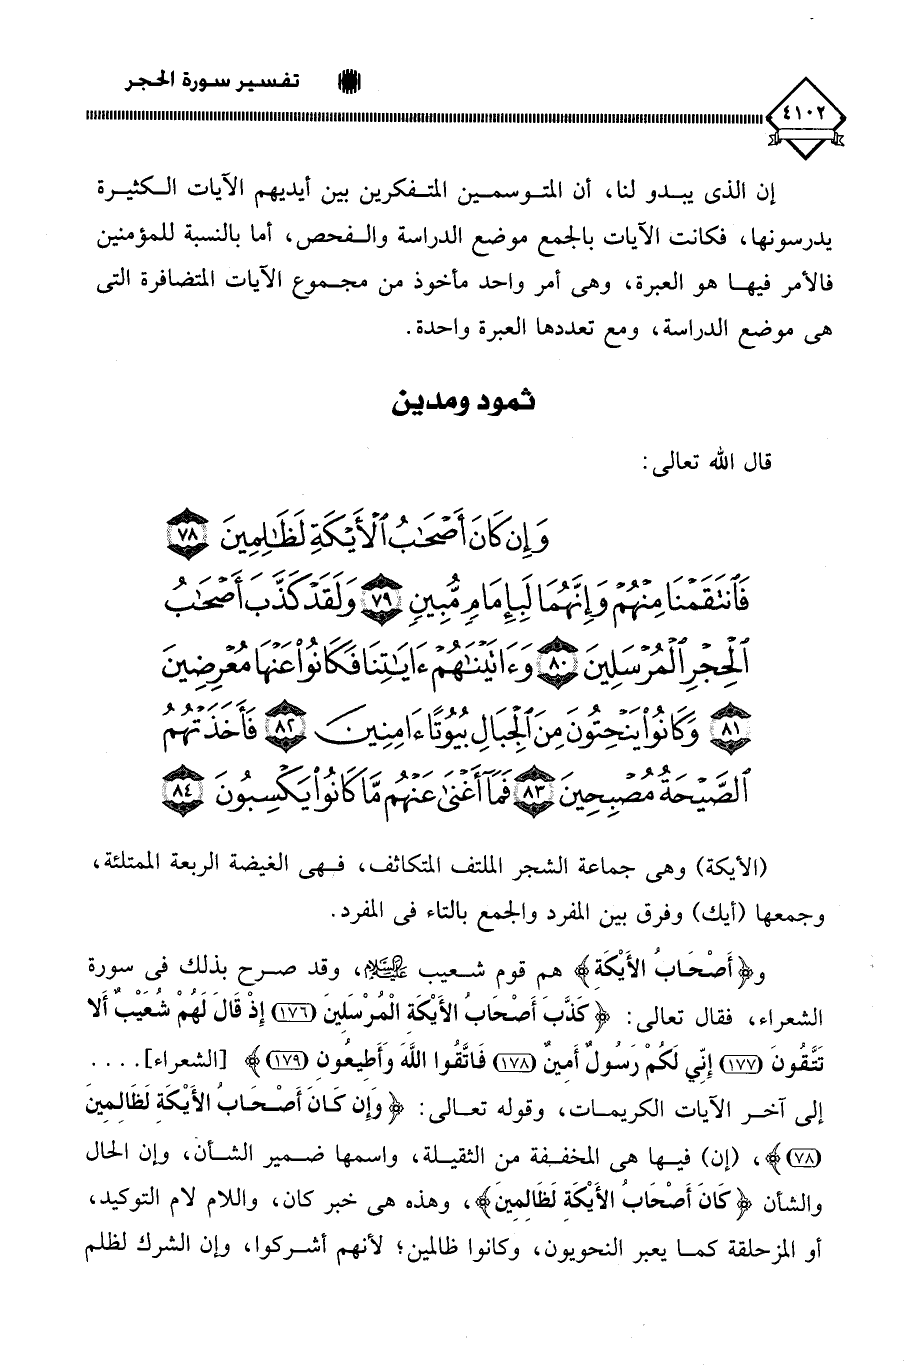 تفسير سورة الحجر
٤١٠٢
إن الذى يبدو لنا، أن المتوسمين المتفكرين بين أيديهم الآيات الكثيرة
يدرسونها، فكانت الآيات بالجمع موضع الدراسة والفحص، أما بالنسبة للمؤمنين
فالأمر فيها هو العبرة، وهى أمر واحد مأخوذ من مجموع الآيات المتضافرة التى
هى موضع الدراسة، ومع تعددها العبرة واحدة.
ثمود ومدين
قال الله تعالى:
وَإِن كَانَ أَصْحَٰبُ ٱلْأَيْكَةِ لَظَٰلِمِينَ ٧٨
فَٱنتَقَمْنَا مِنْهُمْ وَإِنَّهُمَا لَبِإِمَامٍ مُّبِينٍ ٧٩ وَلَقَدْ كَذَّبَ أَصْحَٰبُ
ٱلْحِجْرِ ٱلْمُرْسَلِينَ ٨٠ وَءَاتَيْنَٰهُمْ ءَايَٰتِنَا فَكَانُوا۟ عَنْهَا مُعْرِضِينَ
٨١ وَكَانُوا۟ يَنْحِتُونَ مِنَ ٱلْجِبَالِ بُيُوتًا ءَامِنِينَ ٨٢ فَأَخَذَتْهُمُ
ٱلصَّيْحَةُ مُصْبِحِينَ ٨٣ فَمَآ أَغْنَىٰ عَنْهُم مَّا كَانُوا۟ يَكْسِبُونَ ٨٤
(الأيكة) وهى جماعة الشجر الملتف المتكاثف، فهى الغيضة الربعة الممتلئة،
وجمعها (أيك) وفرق بين المفرد والجمع بالتاء فى المفرد.
و﴿أَصْحَابُ الأَيْكَة﴾ هم قوم شعيب عليه السلام، وقد صرح بذلك فى سورة
الشعراء، فقال تعالى: ﴿كَذَّبَ أَصْحَابُ الأَيْكَةِ الْمُرْسَلِينَ (١٧٦) إِذْ قَالَ لَهُمْ شُعَيْبٌ أَلا
تَتَّقُونَ (١٧٧) إِنِّي لَكُمْ رَسُولٌ أَمِينٌ (١٧٨) فَاتَّقُوا اللَّهَ وَأَطِيعُونِ (١٧٩)﴾ [الشعراء]. . . .
إلى آخر الآيات الكريمات، وقوله تعالى: ﴿وَإِن كَانَ أَصْحَابُ الأَيْكَةِ لَظَالِمِينَ
(٧٨)﴾، (إن) فيها هى المخففة من الثقيلة، واسمها ضمير الشأن، وإن الحال
والشأن ﴿كَانَ أَصْحَابُ الأَيْكَةِ لَظَالِمِينَ﴾، وهذه هى خبر كان، واللام لام التوكيد،
أو المزحلقة كما يعبر النحويون، وكانوا ظالمين؛ لأنهم أشركوا، وإن الشرك لظلم